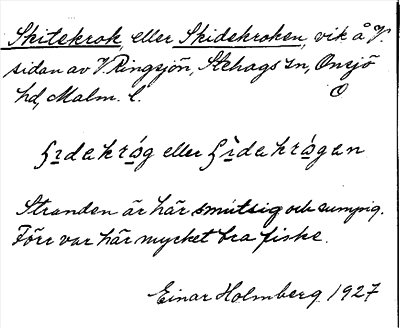 Skitekrok, eller Skidekroken, vik å V.
sidan av V. Ringsjön, Stehags sn, Onsjö
hd, Malm. l. O
ʃidakrǫg eller ʃìdakrǫgan
Stranden är här smutsig och sumpig.
Förr var här mycket bra fiske.
Einar Holmberg 1927